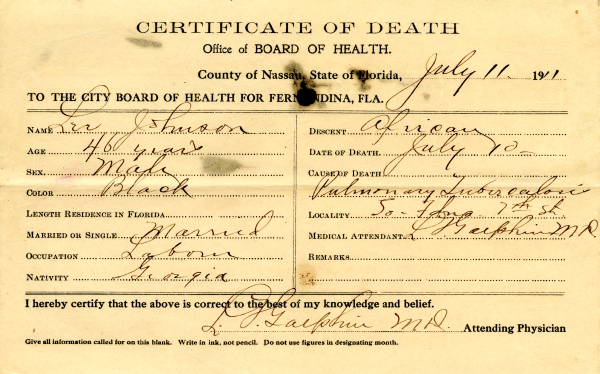 CERTIFICATE OF DEATH
Office of BOARD OF HEALTH.
County of Nassau, State of Florida, July 11. 1911
TO THE CITY BOARD OF HEALTH FOR FERNANDINA, FLA.
NAME Johnson
AGE 46 years
SEX. Male
COLOR Black
LENGTH RESIDENCE IN FLORIDA
MARRIED OR SINGLE Married
OCCUPATION Laborer
NATIVITY Georgia
DESCENT African
DATE OF DEATH. July 10-
CAUSE OF DEATH
Pulmonary Tuberculosis
LOCALITY So- 7th St.
MEDICAL ATTENDANT. Galphin M.D.
REMARKS
I hereby certify that the above is correct to the best of my knowledge and belief.
Galphin M.D. Attending Physician
Give all information called for on this blank. Write in ink, not pencil. Do not use figures in designating month.